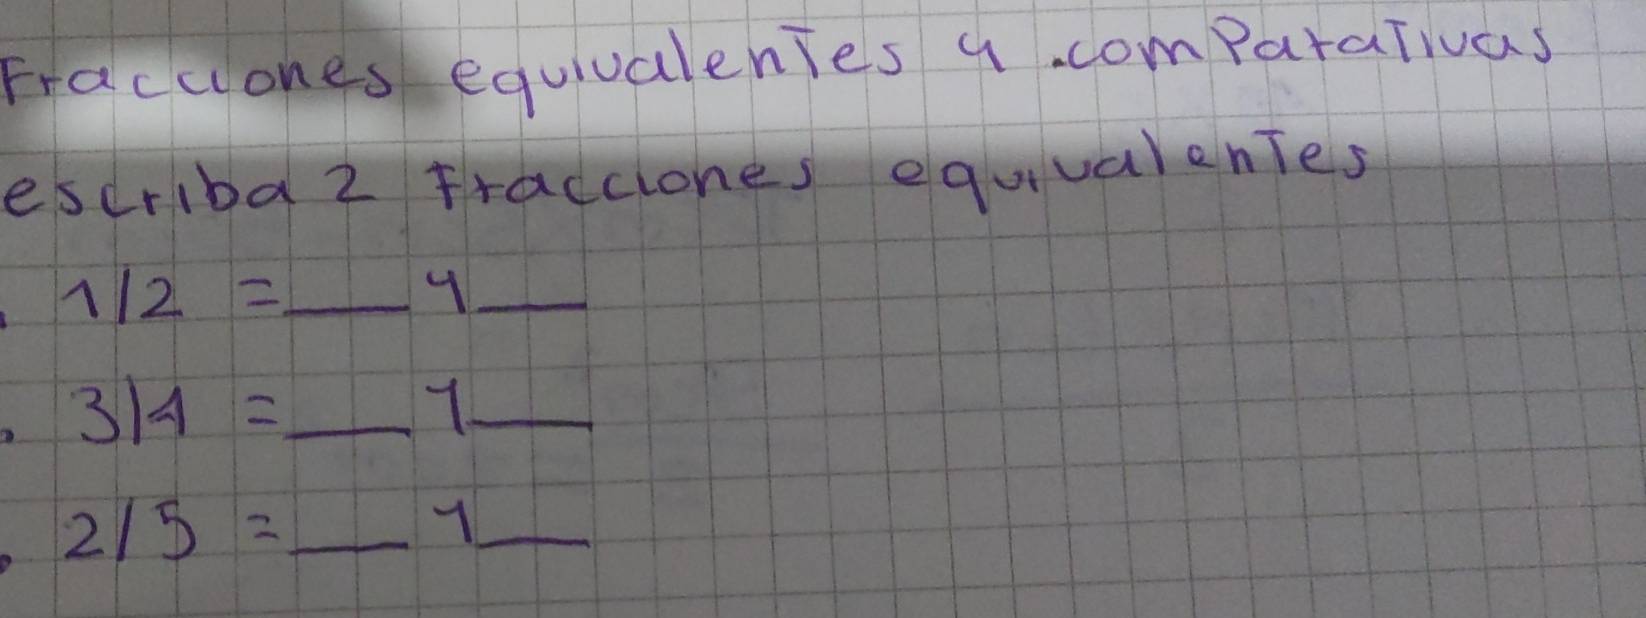 Fracciones equivalentes y .comParativas
escriba 2 Fracciones equivalentes
. 1/2 = ___ y ___
. 3/4 = ___ y ___
. 2/5 = ___ y ___